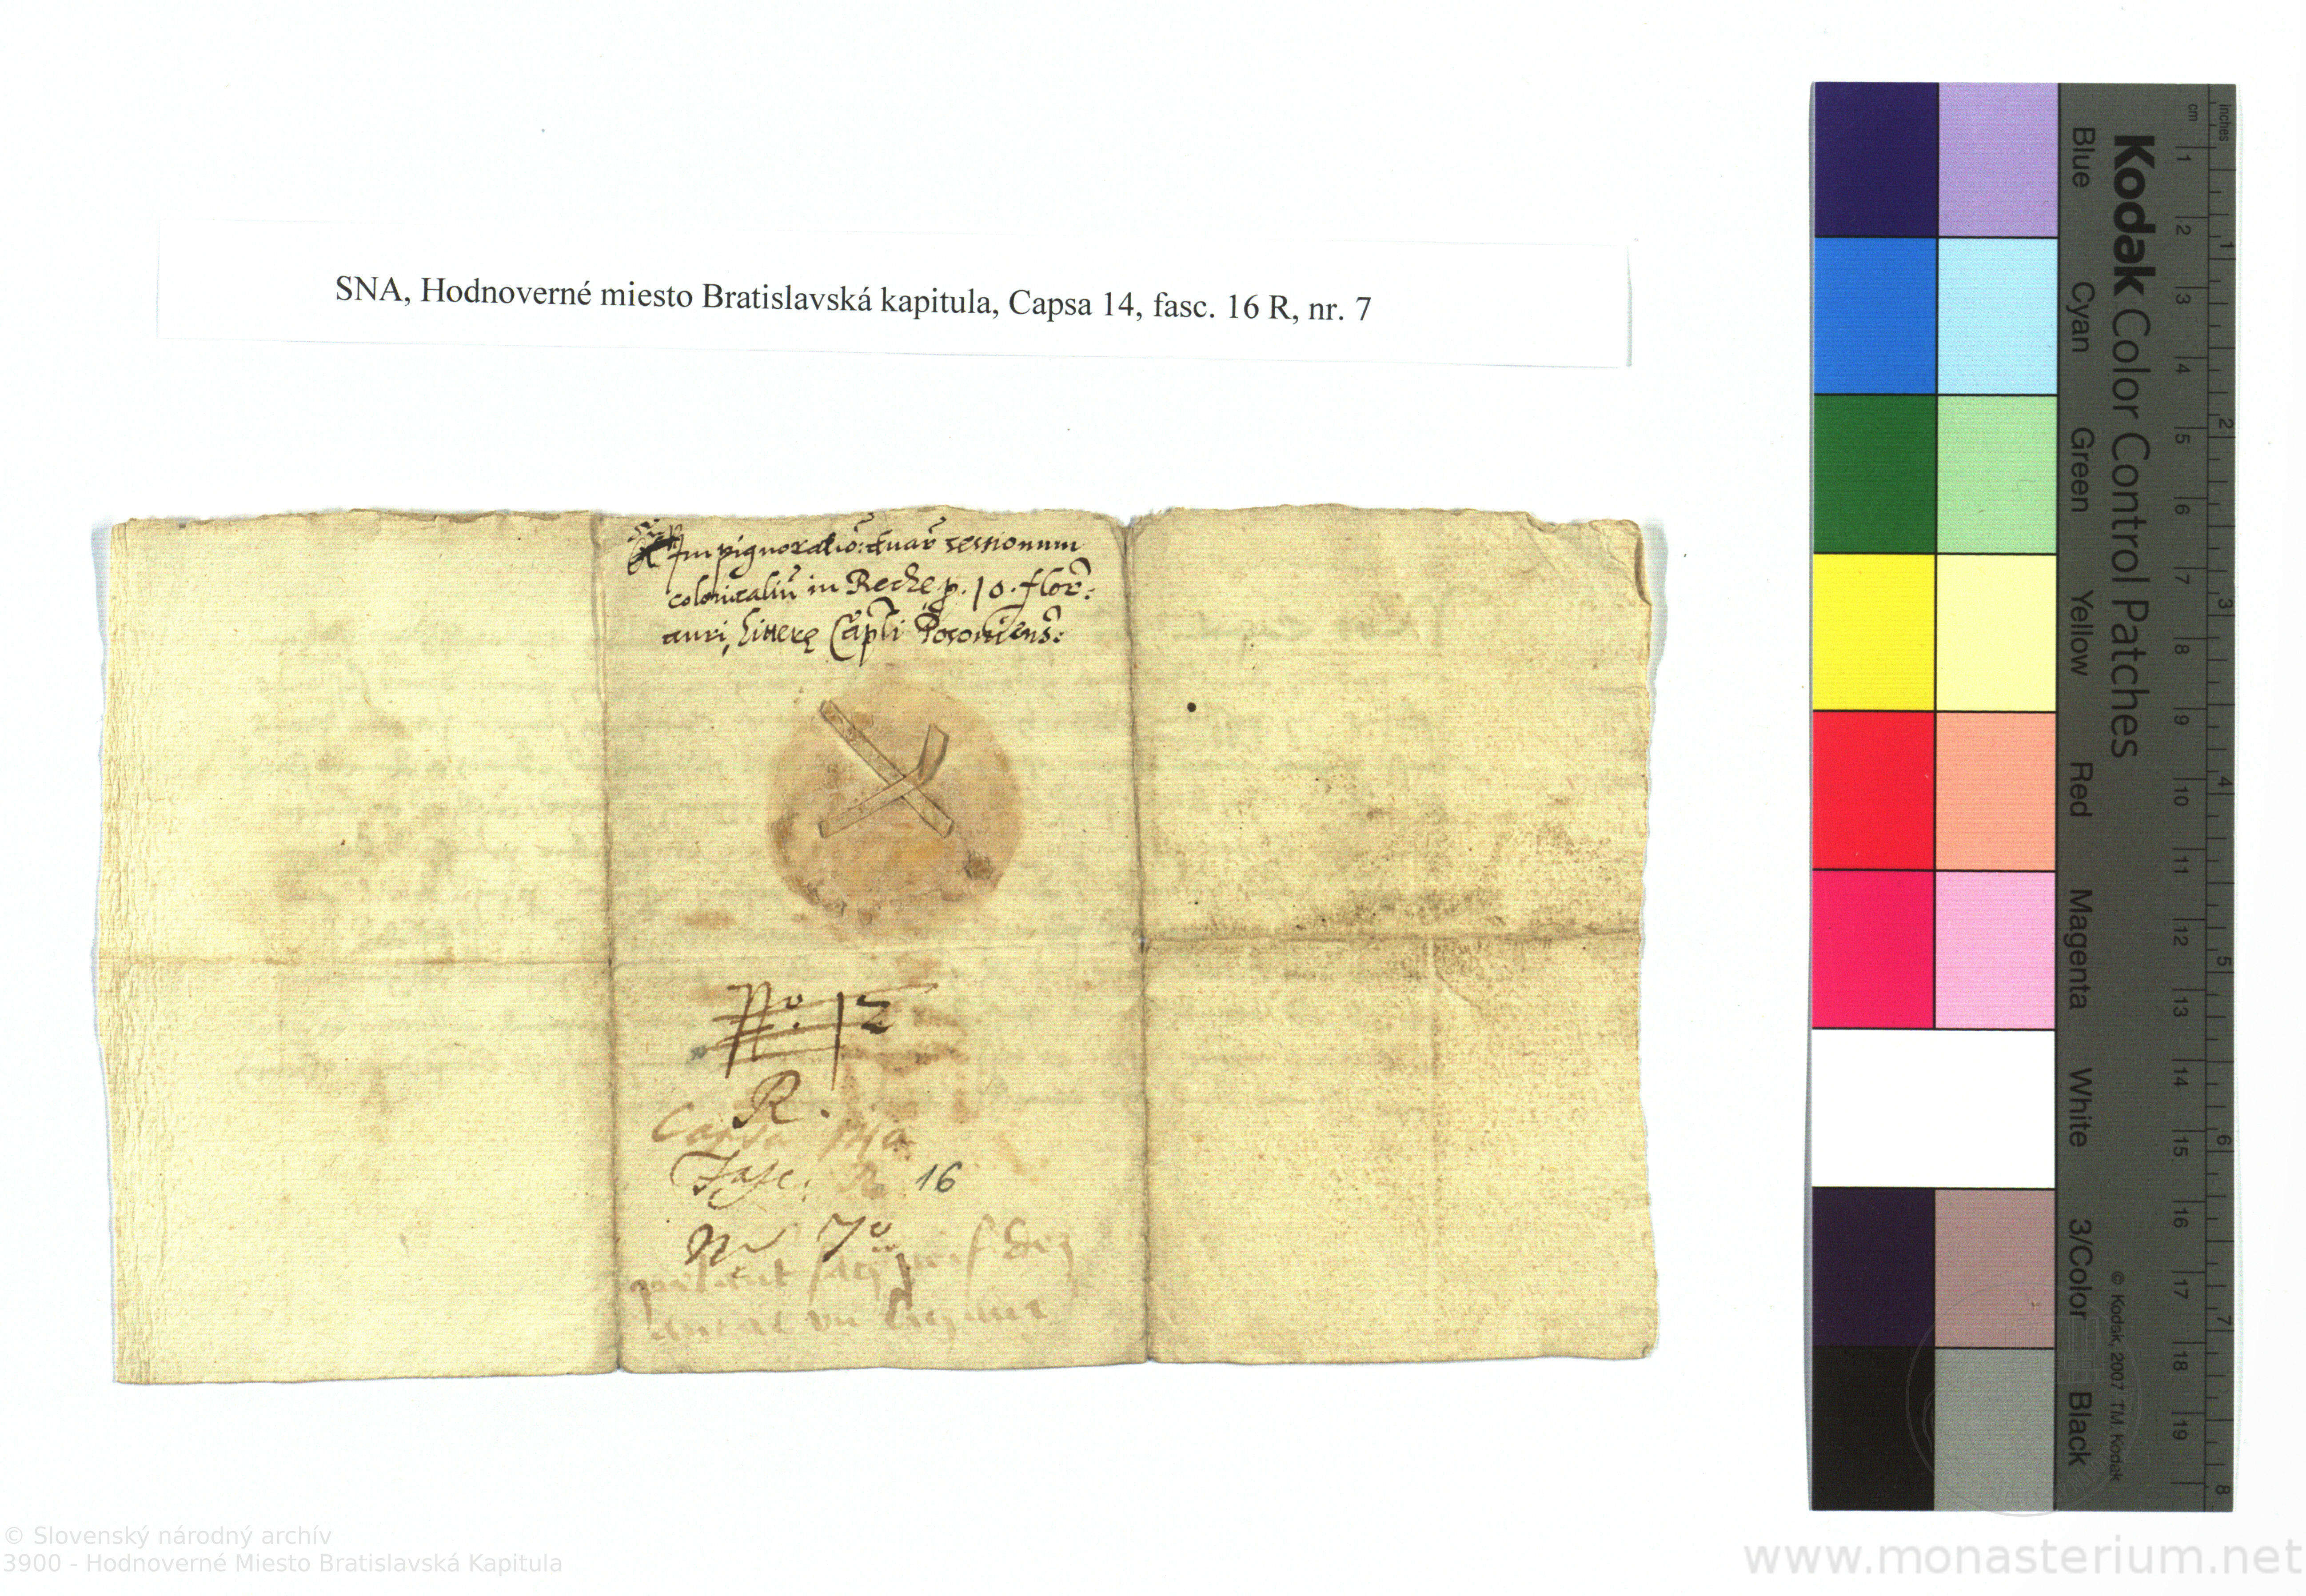 SNA, Hodnoverné miesto Bratislavská kapitula, Capsa 14, fasc. 16 R, nr. 7
Impignoratio: duar sessionum
colonicaliū in Reche p. 10. flor:
auri, Litterę Capli Posoniens:
No. 12
R.
Capsa 14a
Fasc: R 16
Nr 7o
Kodak Color Control Patches
Blue Cyan Green Yellow Red Magenta White 3/Color Black
© Kodak, 2007 TM: Kodak
cm 1 2 3 4 5 6 7 8 9 10 11 12 13 14 15 16 17 18 19
inches 1 2 3 4 5 6 7 8
© Slovenský národný archív
3900 - Hodnoverné Miesto Bratislavská Kapitula
www.monasterium.net